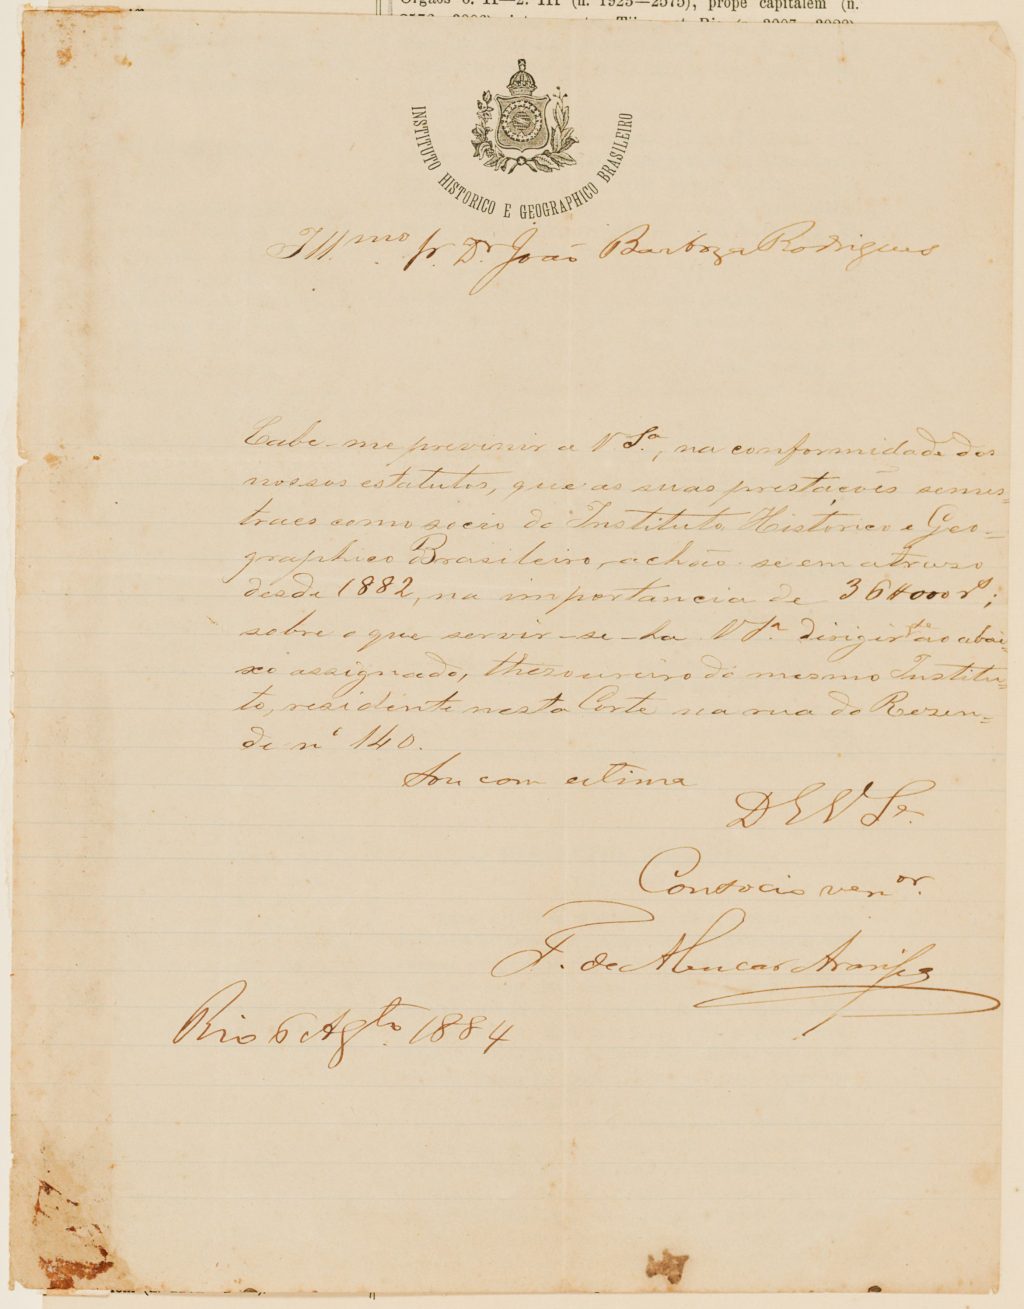 Orgãos 6. II—2. III (n. 1923—2575), prope capitalem (n.
INSTITUTO HISTORICO E GEOGRAPHICO BRASILEIRO
Illmo Sr. Dr João Barboza Rodrigues
Cabe-me previnir a V Sa, na conformidade dos
nossos estatutos, que as suas prestações semes-
traes como socio do Instituto Historico e Geo-
graphico Brasileiro, achão-se em atrazo
desde 1882, na importancia de 36$000 rs;
sobre o que servir-se-ha V Sa dirigir-se ao abai-
xo assignado, thesoureiro do mesmo Institu-
to, residente nesta Corte na rua do Rezen-
de no 140.
Sou com estima
D E V Sa.
Consocio venor.
F. de Alencar Araripe
Rio 6 Agto 1884